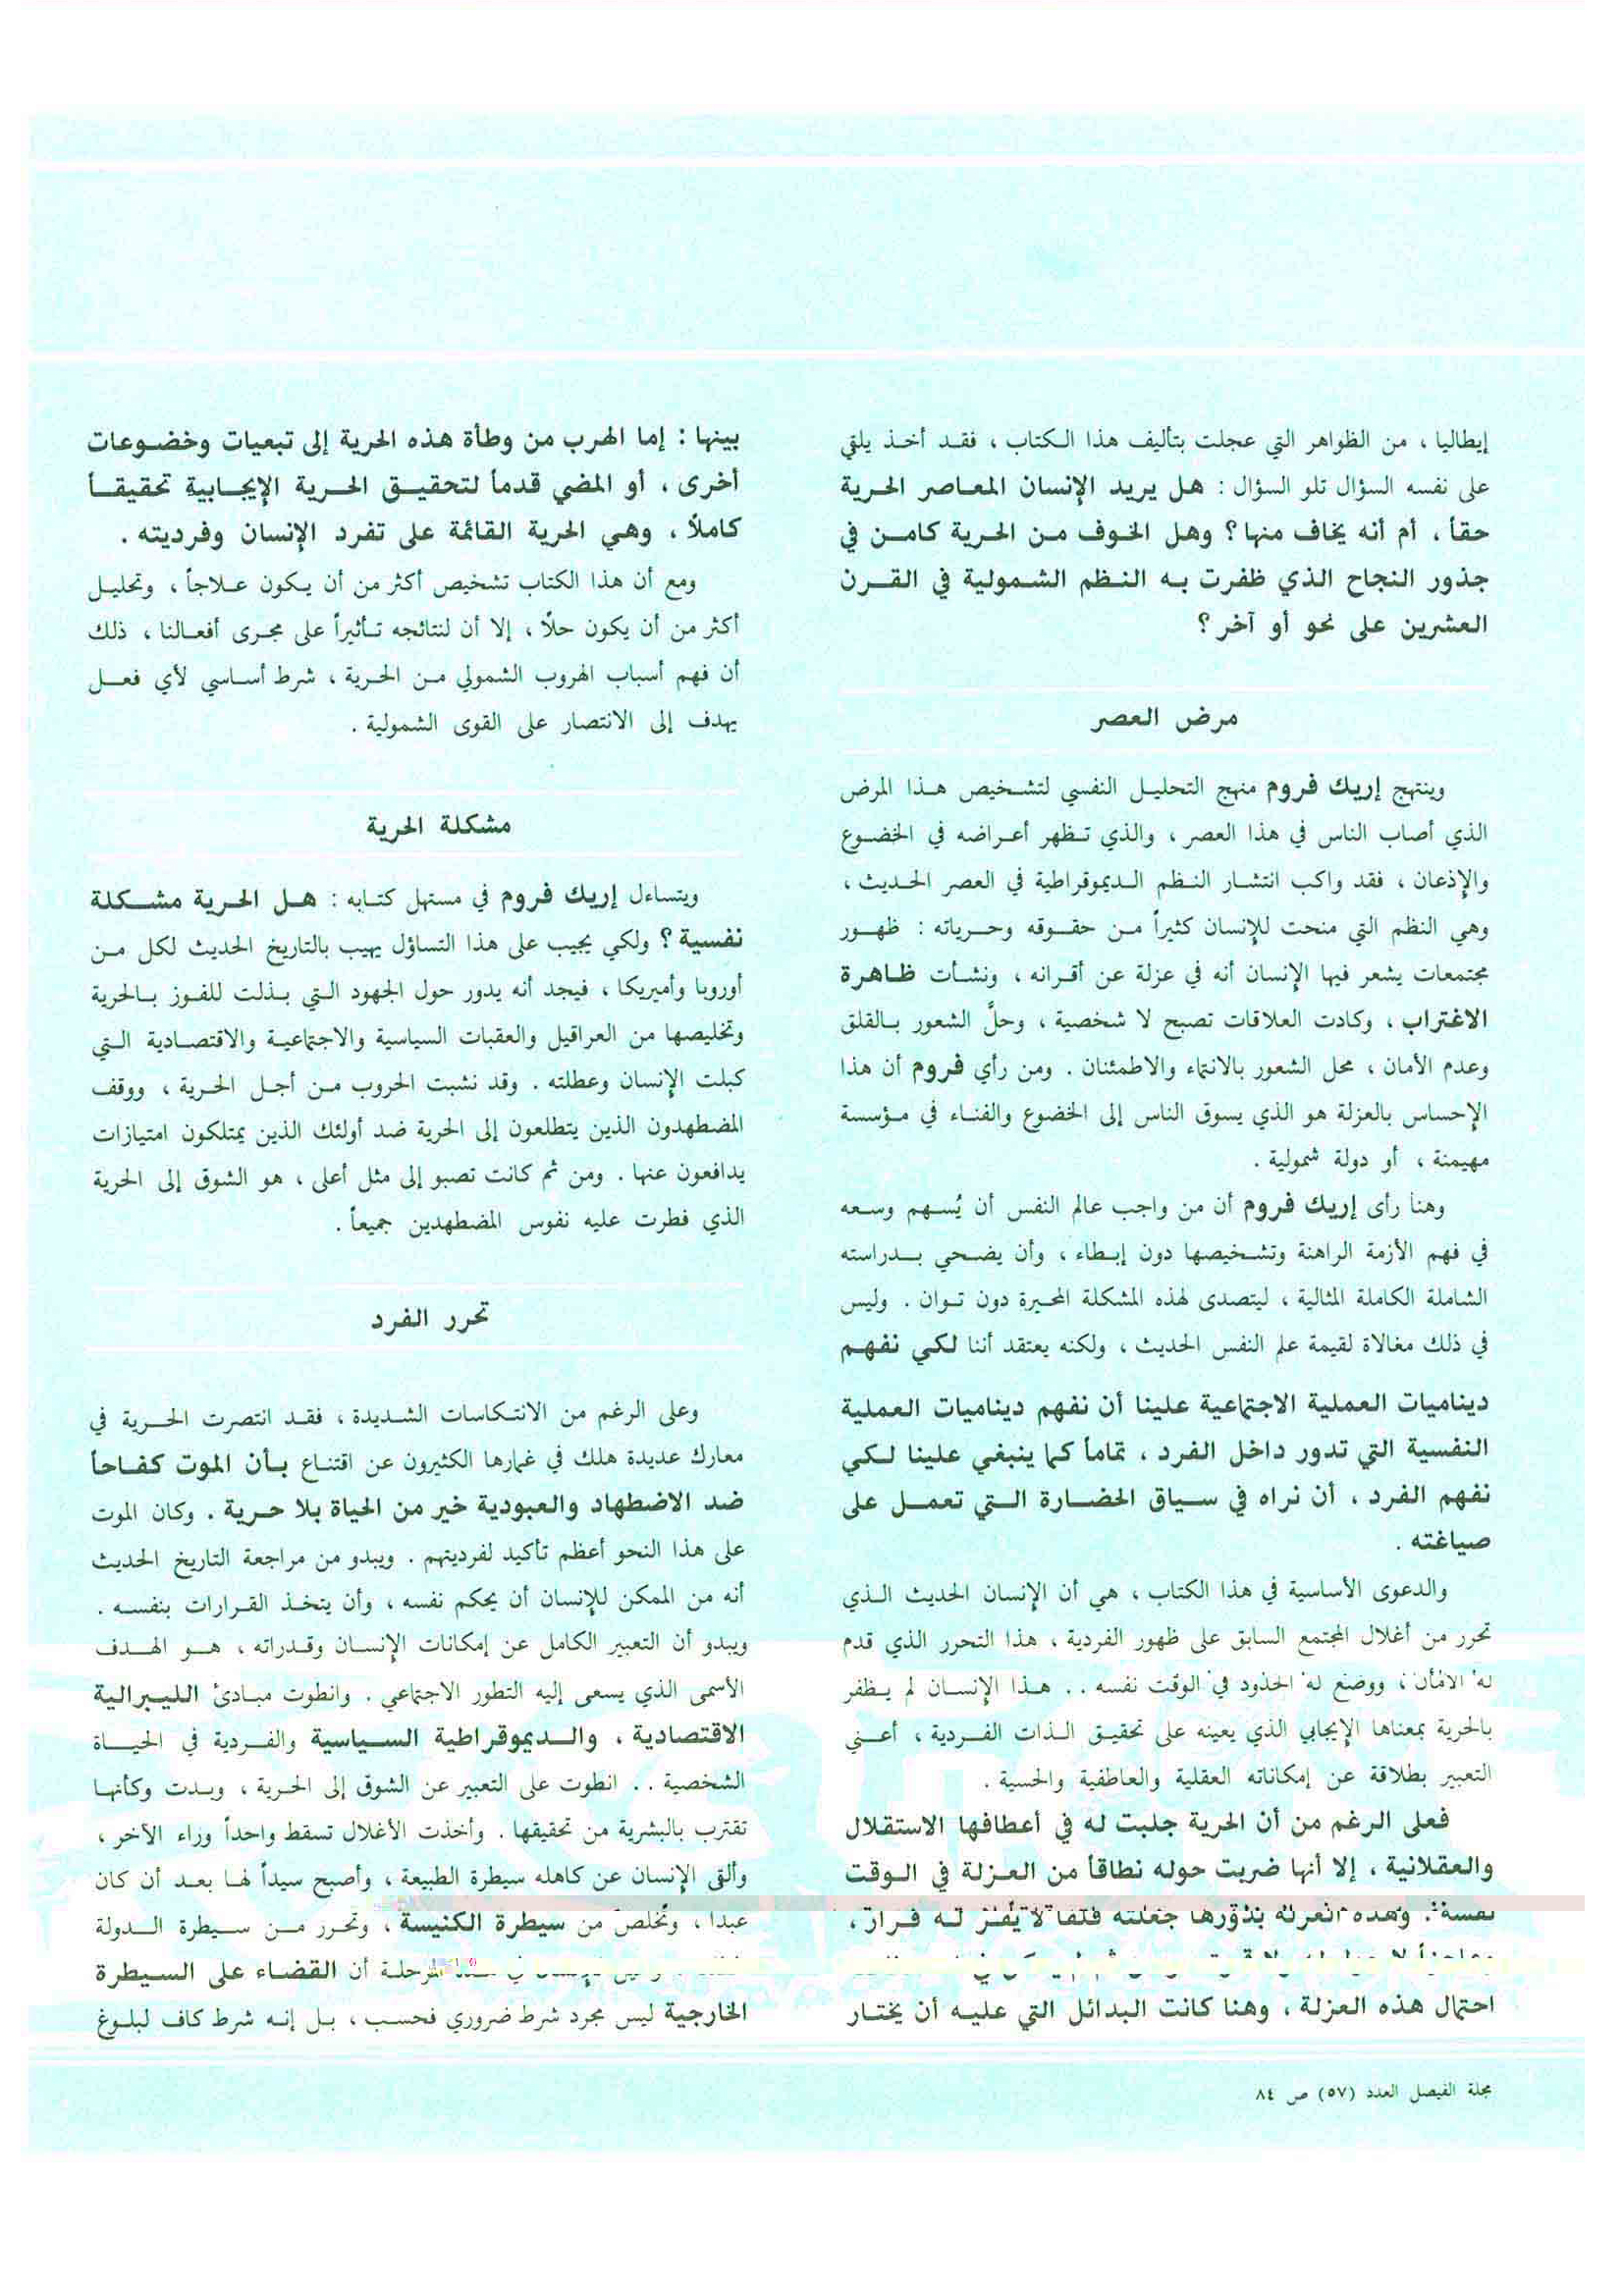 إيطاليا ، من الظواهر التي عجلت بتأليف هذا الكتاب ، فقد أخذ يلقي
على نفسه السؤال تلو السؤال : هل يريد الإنسان المعاصر الحرية
حقاً ، أم أنه يخاف منها ؟ وهل الخوف من الحرية كامن في
جذور النجاح الذي ظفرت به النظم الشمولية في القرن
العشرين على نحو أو آخر ؟
مرض العصر
وينتهج إريك فروم منهج التحليل النفسي لتشخيص هذا المرض
الذي أصاب الناس في هذا العصر ، والذي تظهر أعراضه في الخضوع
والإذعان ، فقد واكب انتشار النظم الديموقراطية في العصر الحديث ،
وهي النظم التي منحت للإنسان كثيراً من حقوقه وحرياته : ظهور
مجتمعات يشعر فيها الإنسان أنه في عزلة عن أقرانه ، ونشأت ظاهرة
الاغتراب ، وكادت العلاقات تصبح لا شخصية ، وحلَّ الشعور بالقلق
وعدم الأمان ، محل الشعور بالانتماء والاطمئنان . ومن رأي فروم أن هذا
الإحساس بالعزلة هو الذي يسوق الناس إلى الخضوع والفناء في مؤسسة
مهيمنة ، أو دولة شمولية .
وهنا رأى إريك فروم أن من واجب عالم النفس أن يُسهم وسعه
في فهم الأزمة الراهنة وتشخيصها دون إبطاء ، وأن يضحي بدراسته
الشاملة الكاملة المثالية ، ليتصدى لهذه المشكلة المحيرة دون توان . وليس
في ذلك مغالاة لقيمة علم النفس الحديث ، ولكنه يعتقد أننا لكي نفهم
ديناميات العملية الاجتماعية علينا أن نفهم ديناميات العملية
النفسية التي تدور داخل الفرد ، تماماً كما ينبغي علينا لكي
نفهم الفرد ، أن نراه في سياق الحضارة التي تعمل على
صياغته .
والدعوى الأساسية في هذا الكتاب ، هي أن الإنسان الحديث الذي
تحرر من أغلال المجتمع السابق على ظهور الفردية ، هذا التحرر الذي قدم
له الأمان ، ووضع له الحدود في الوقت نفسه .. هذا الإنسان لم يظفر
بالحرية بمعناها الإيجابي الذي يعينه على تحقيق الذات الفردية ، أعني
التعبير بطلاقة عن إمكاناته العقلية والعاطفية والحسية .
فعلى الرغم من أن الحرية جلبت له في أعطافها الاستقلال
والعقلانية ، إلا أنها ضربت حوله نطاقاً من العزلة في الوقت
نفسه . وهذه العزلة بدورها جعلته قلقاً لا يقر له قرار ،
احتمال هذه العزلة ، وهنا كانت البدائل التي عليه أن يختار
بينها : إما الهرب من وطأة هذه الحرية إلى تبعيات وخضوعات
أخرى ، أو المضي قدماً لتحقيق الحرية الإيجابية تحقيقاً
كاملاً ، وهي الحرية القائمة على تفرد الإنسان وفرديته .
ومع أن هذا الكتاب تشخيص أكثر من أن يكون علاجاً ، وتحليل
أكثر من أن يكون حلاً ، إلا أن لنتائجه تأثيراً على مجرى أفعالنا ، ذلك
أن فهم أسباب الهروب الشمولي من الحرية ، شرط أساسي لأي فعل
يهدف إلى الانتصار على القوى الشمولية .
مشكلة الحرية
ويتساءل إريك فروم في مستهل كتابه : هل الحرية مشكلة
نفسية ؟ ولكي يجيب على هذا التساؤل يهيب بالتاريخ الحديث لكل من
أوروبا وأميريكا ، فيجد أنه يدور حول الجهود التي بذلت للفوز بالحرية
وتخليصها من العراقيل والعقبات السياسية والاجتماعية والاقتصادية التي
كبلت الإنسان وعطلته . وقد نشبت الحروب من أجل الحرية ، ووقف
المضطهدون الذين يتطلعون إلى الحرية ضد أولئك الذين يمتلكون امتيازات
يدافعون عنها . ومن ثم كانت تصبو إلى مثل أعلى ، هو الشوق إلى الحرية
الذي فطرت عليه نفوس المضطهدين جميعاً .
تحرر الفرد
وعلى الرغم من الانتكاسات الشديدة ، فقد انتصرت الحرية في
معارك عديدة هلك في غمارها الكثيرون عن اقتناع بأن الموت كفاحاً
ضد الاضطهاد والعبودية خير من الحياة بلا حرية . وكان الموت
على هذا النحو أعظم تأكيد لفرديتهم . ويبدو من مراجعة التاريخ الحديث
أنه من الممكن للإنسان أن يحكم نفسه ، وأن يتخذ القرارات بنفسه .
ويبدو أن التعبير الكامل عن إمكانات الإنسان وقدراته ، هو الهدف
الأسمى الذي يسعى إليه التطور الاجتماعي . وانطوت مبادئ الليبرالية
الاقتصادية ، والديموقراطية السياسية والفردية في الحياة
الشخصية .. انطوت على التعبير عن الشوق إلى الحرية ، وبدت وكأنها
تقترب بالبشرية من تحقيقها . وأخذت الأغلال تسقط واحداً وراء الآخر ،
وألقى الإنسان عن كاهله سيطرة الطبيعة ، وأصبح سيداً لها بعد أن كان
عبداً ، وتخلص من سيطرة الكنيسة ، وتحرر من سيطرة الدولة
المرحلة أن القضاء على السيطرة
الخارجية ليس مجرد شرط ضروري فحسب ، بل إنه شرط كاف لبلوغ
مجلة الفيصل العدد (٥٧) ص ٨٤